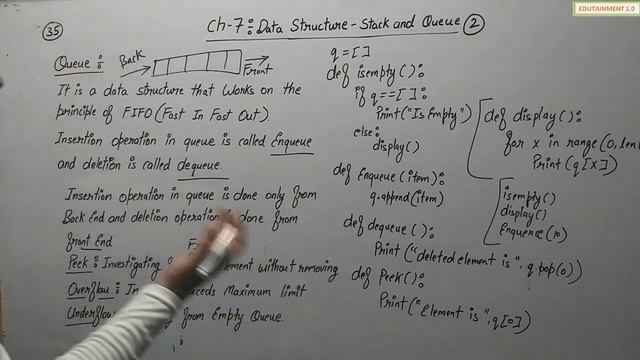 EDUTAINMENT 1.0
35
Ch-7: Data Structure - Stack and Queue 2
Queue:
Back
Front
It is a data structure that Works on the
principle of FIFO (Fast In Fast Out).
Insertion operation in queue is called Enqueue
and deletion is called dequeue.
Insertion operation in queue is done only from
Back End and deletion operation is done from
front End
Peek: Investigating element without removing
Overflow: In exceeds Maximum limit
Underflow from Empty Queue.
q=[]
def isempty():
if q==[]:
Print("Is Empty")
else:
display()
def Enqueue(item):
q.append(item)
def dequeue():
Print("deleted element is", q.pop(0))
def Peek():
Print("Element is", q[0])
def display():
for x in range(0, len
Print(q[x])
isempty()
display()
Enquence(10)